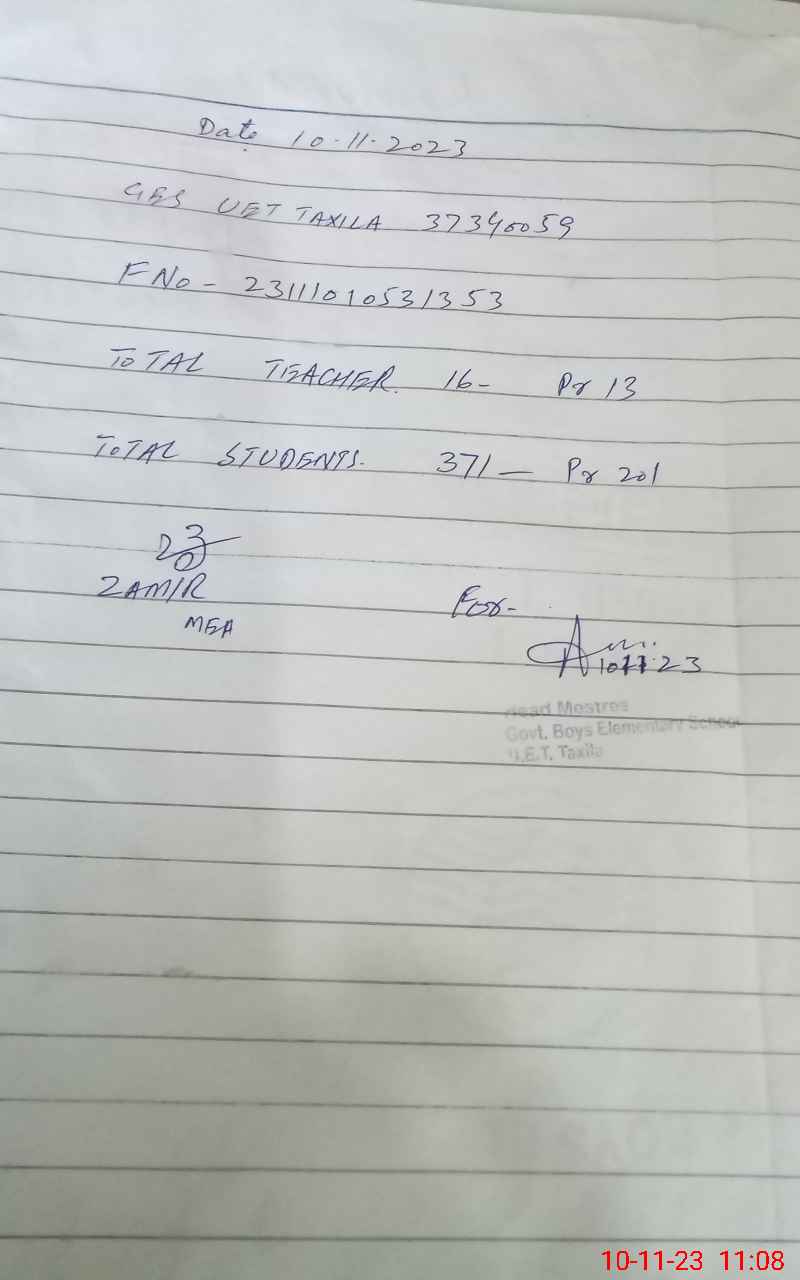 Date 10.11.2023
GES UET TAXILA 37340059
F No - 23111010531353
TOTAL TEACHER. 16- Pr 13
TOTAL STUDENTS. 371 — Pr 201
ZAMIR
MEA
For-
10-11-23
Head Mestres
Govt. Boys Elementary School
U.E.T, Taxila
10-11-23 11:08